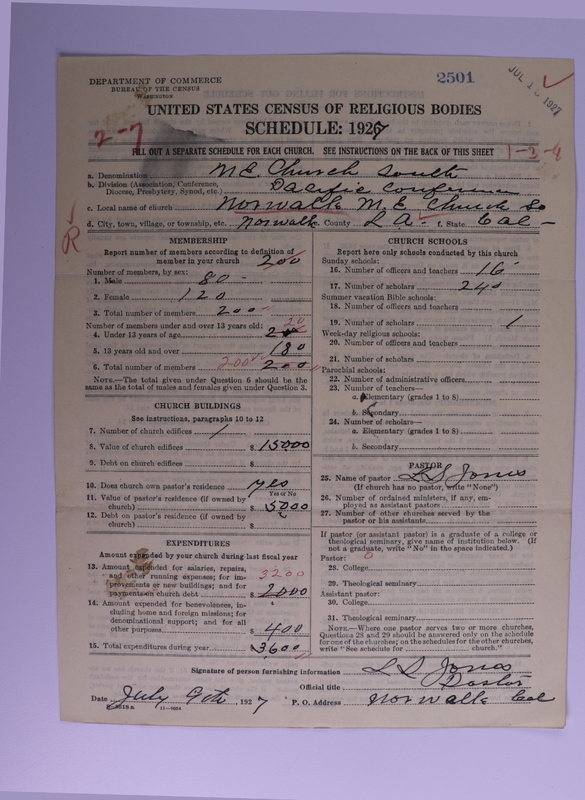 DEPARTMENT OF COMMERCE
BUREAU OF THE CENSUS
WASHINGTON
2501
JUL 1 1927
UNITED STATES CENSUS OF RELIGIOUS BODIES
SCHEDULE: 1927
2-7
FILL OUT A SEPARATE SCHEDULE FOR EACH CHURCH. SEE INSTRUCTIONS ON THE BACK OF THIS SHEET
1-3-8
a. Denomination M.E. Church South
b. Division (Association, Conference, Diocese, Presbytery, Synod, etc.) Pacific Conference
c. Local name of church Norwalk M.E. Church So
d. City, town, village, or township, etc. Norwalk e. County L A. f. State Cal -
R
MEMBERSHIP
Report number of members according to definition of
member in your church 200
Number of members, by sex:
1. Male 80 -
2. Female 120
3. Total number of members 200
Number of members under and over 13 years old: 20
4. Under 13 years of age
5. 13 years old and over 180
6. Total number of members 200 200
NOTE.—The total given under Question 6 should be
same as the total of males and females given under Question 3.
CHURCH BUILDINGS
See instructions, paragraphs 10 to 12
7. Number of church edifices 1
8. Value of church edifices $ 15000
9. Debt on church edifices $
10. Does church own pastor's residence? yes
Yes or No
11. Value of pastor's residence (if owned by
church) $ 5000
12. Debt on pastor's residence (if owned by
church) $
EXPENDITURES
Amount expended by your church during last fiscal year
13. Amount expended for salaries, repairs,
and other running expenses; for im-
provements or new buildings; and for
payments on church debt 3200 $
14. Amount expended for benevolences, in-
cluding home and foreign missions; for
denominational support; and for all
other purposes $ 400
15. Total expenditures during year $ 3600
CHURCH SCHOOLS
Report here only schools conducted by this church
Sunday schools:
16. Number of officers and teachers 16
17. Number of scholars 240
Summer vacation Bible schools:
18. Number of officers and teachers
19. Number of scholars 1
Week-day religious schools:
20. Number of officers and teachers
21. Number of scholars
Parochial schools:
22. Number of administrative officers
23. Number of teachers—
a. Elementary (grades 1 to 8)
b. Secondary
24. Number of scholars—
a. Elementary (grades 1 to 8)
b. Secondary
PASTOR
25. Name of pastor L S Jones
(If church has no pastor, write "None")
26. Number of ordained ministers, if any, em-
ployed as assistant pastors
27. Number of other churches served by the
pastor or his assistants
If pastor (or assistant pastor) is a graduate of a college or
theological seminary, give name of institution below. (If
not a graduate, write "No" in the space indicated.)
Pastor: 0
28. College
29. Theological seminary
Assistant pastor:
30. College
31. Theological seminary
NOTE.—Where one pastor serves two or more churches,
Questions 28 and 29 should be answered only on the schedule
for one of the churches; on the schedules for the other churches,
write "See schedule for church."
Signature of person furnishing information L S Jones
Official title Pastor
Date July 9th, 1927 P. O. Address Norwalk Cal